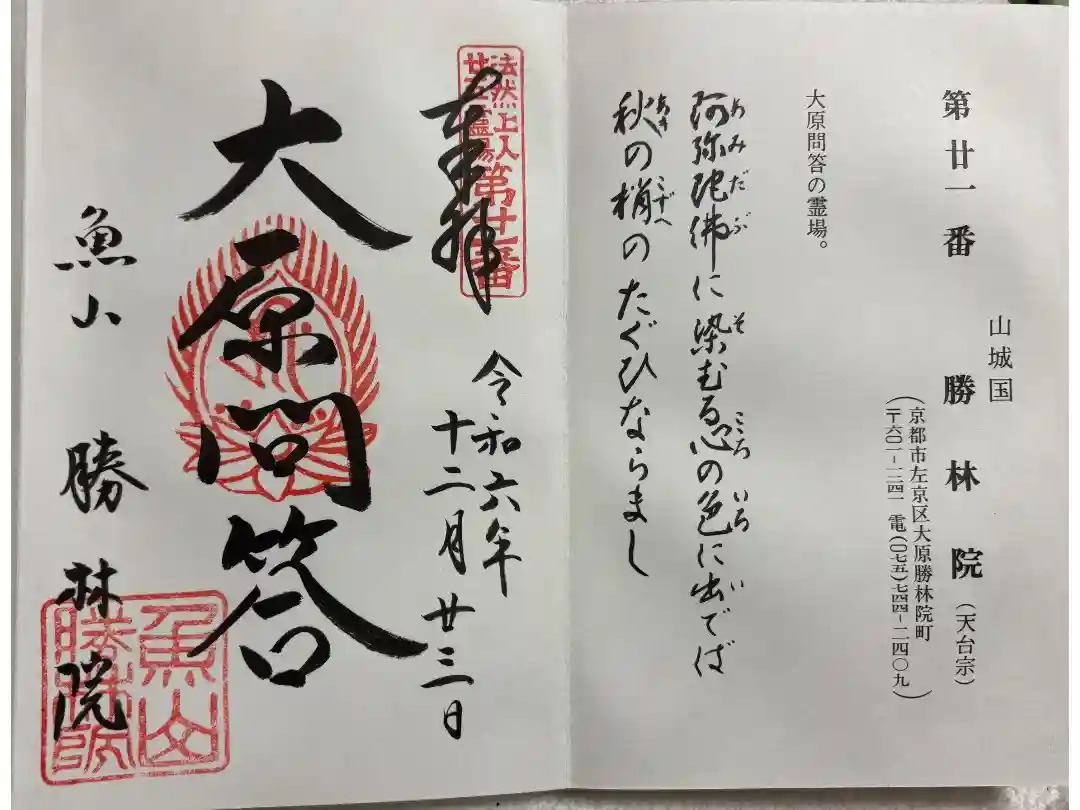 山城国
第廿一番 勝林院(天台宗)
(京都市左京区大原勝林院町
〒六〇一-一二四一 電(〇七五)七四四-二四〇九)
大原問答の霊場。
阿弥陀佛に染むる心の色に出でば
あみだぶ そ こころ いろ い
秋の梢のたぐひならまし
あき こずへ
法然上人
廿五霊場第廿一番
奉拝
令和六年
十二月廿三日
大原問答
魚山 勝林院
魚山
勝林院